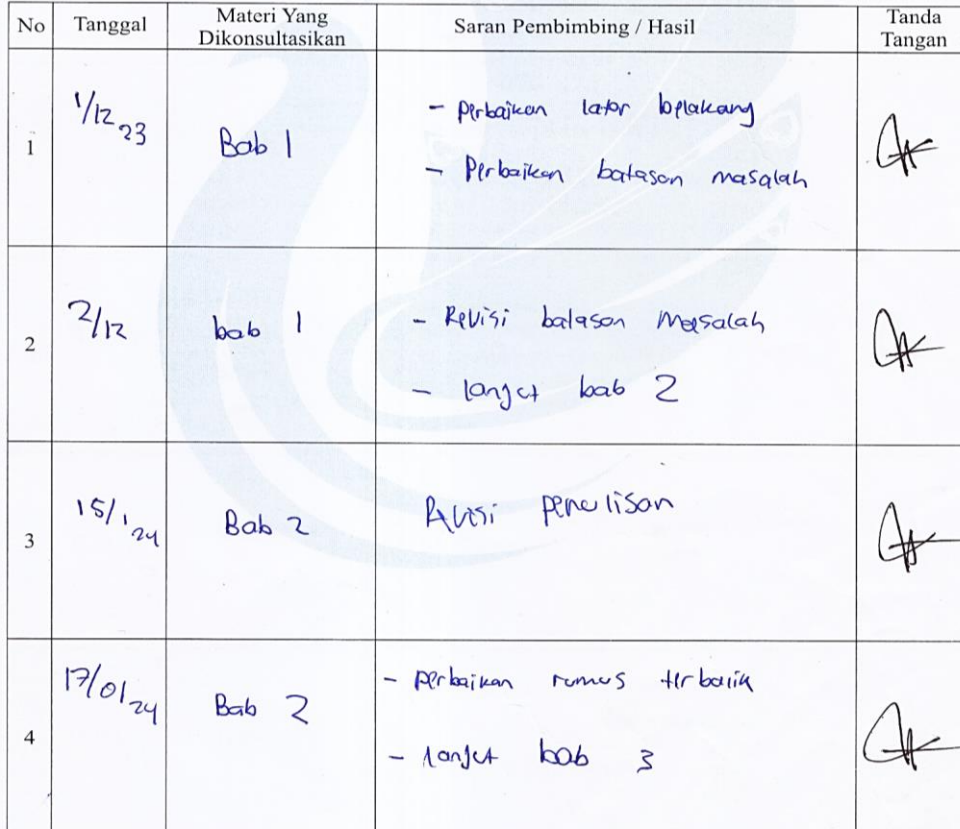 No Tanggal Materi Yang Dikonsultasikan Saran Pembimbing / Hasil Tanda Tangan
1 1/12 23 Bab 1 - perbaikan latar belakang
- Perbaikan batasan masalah
2 2/12 bab 1 - Revisi batasan masalah
- lanjut bab 2
3 15/1 24 Bab 2 Revisi penulisan
4 17/01 24 Bab 2 - perbaikan rumus terbalik
- lanjut bab 3